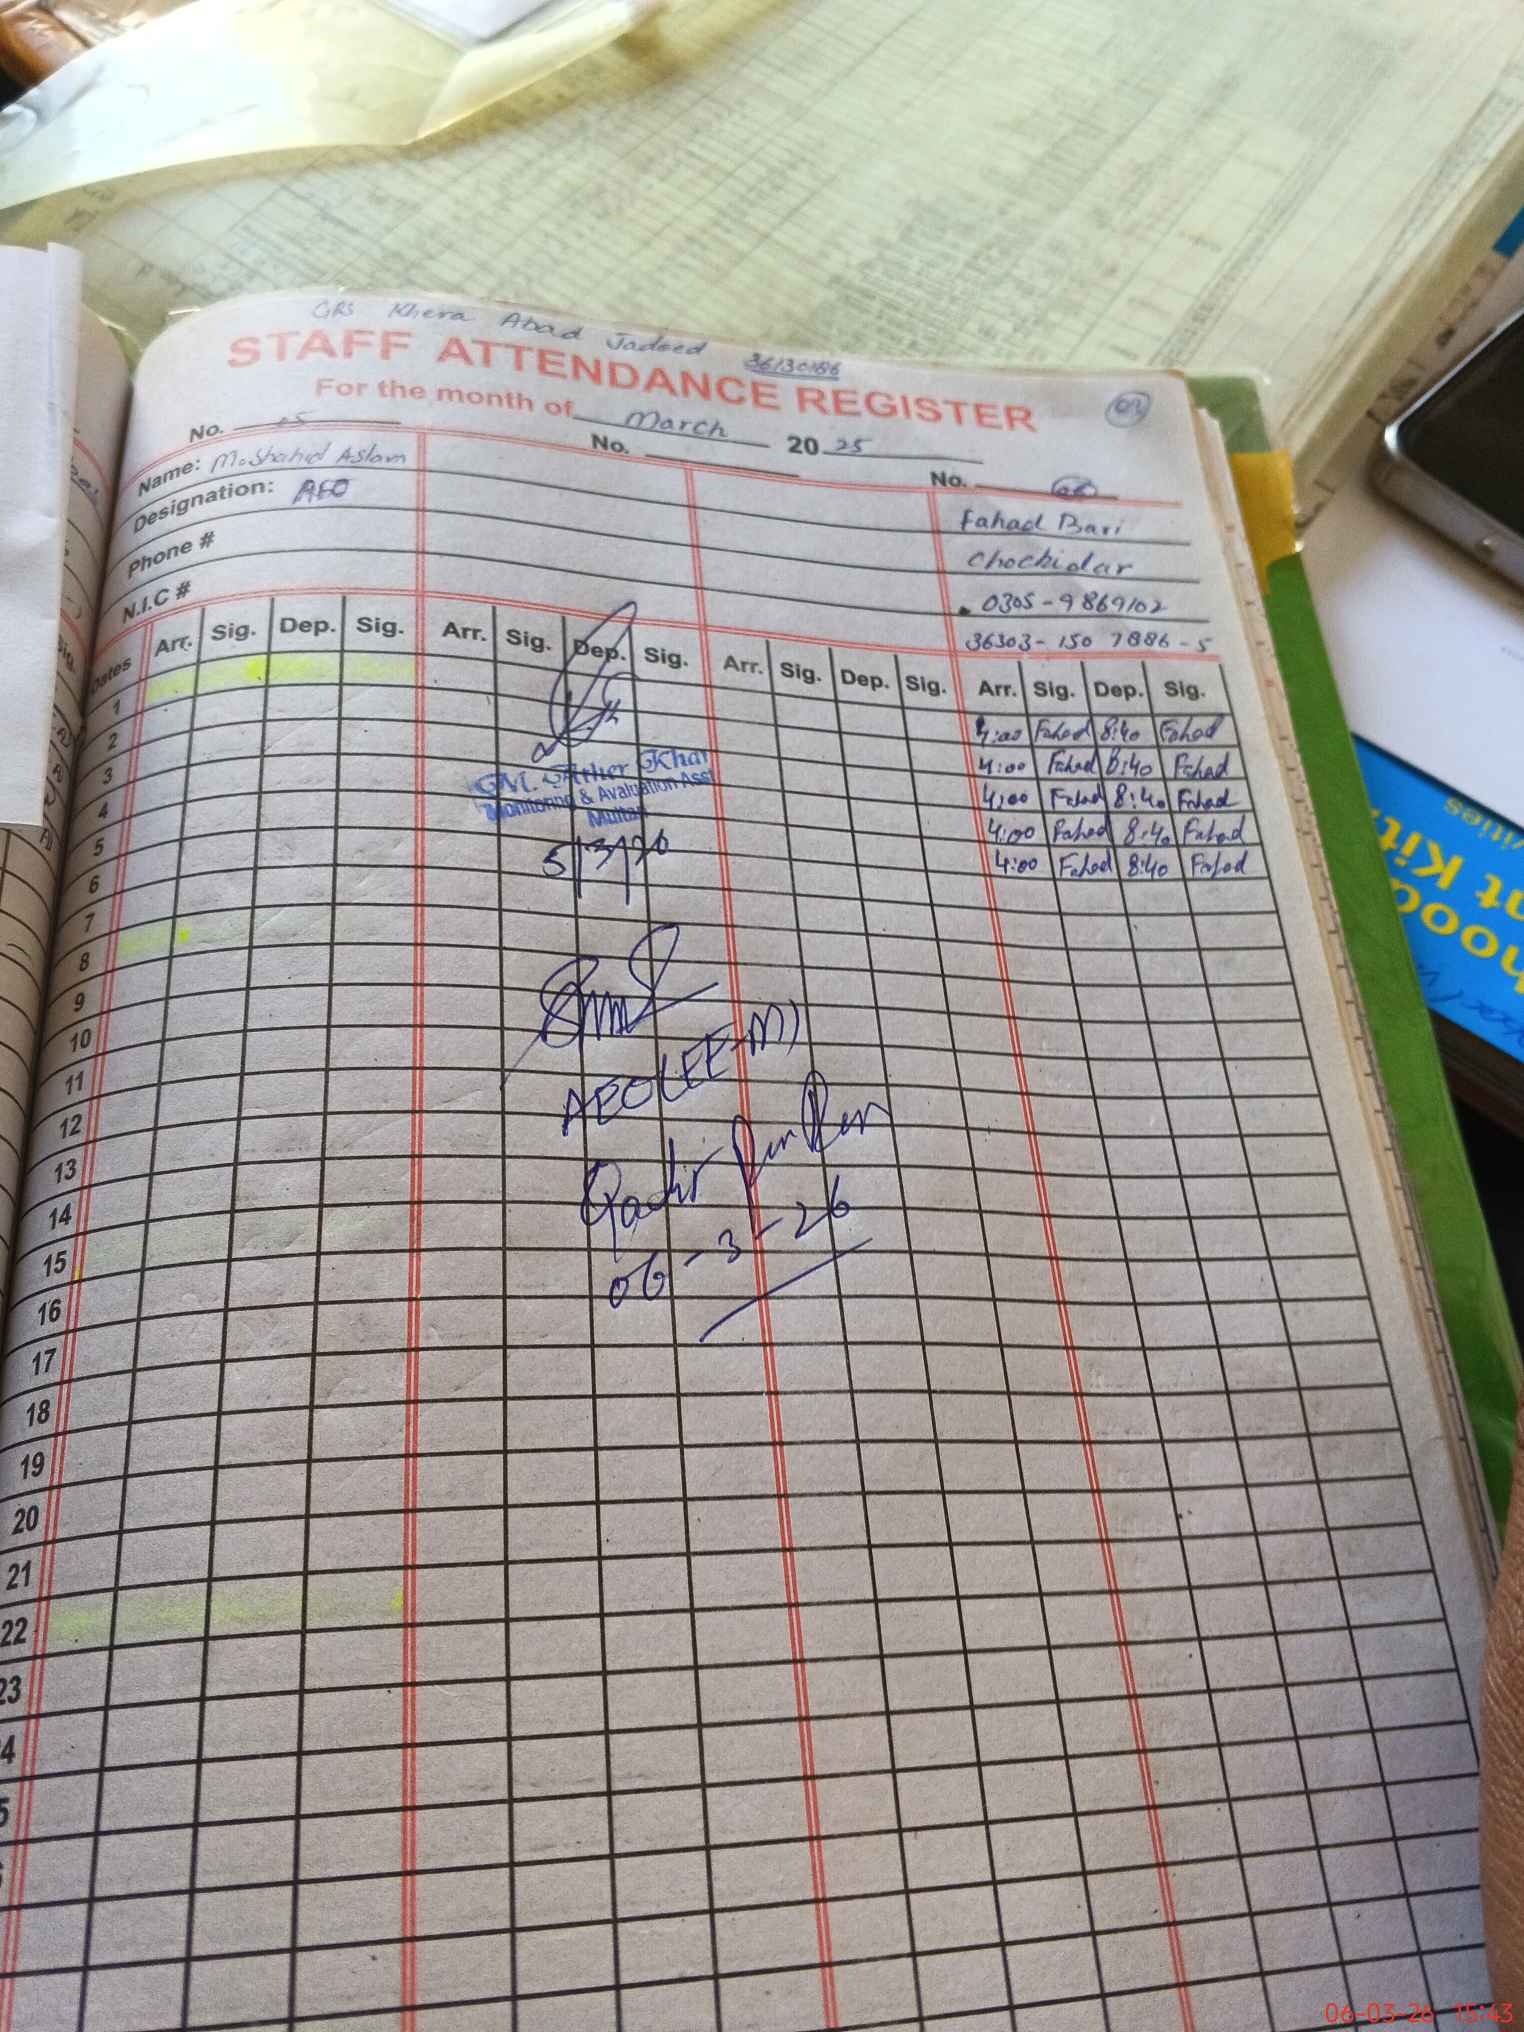 GRS Khera Abad Jadeed 36130186
STAFF ATTENDANCE REGISTER
For the month of March 20 25
No. 05 No. No. 06
Name: M. Shahid Aslam Fahad Bari
Designation: AEO Chockidar
Phone # 0305-9869102
N.I.C # 36303-150 7886-5
Dates Arr. Sig. Dep. Sig. Arr. Sig. Dep. Sig. Arr. Sig. Dep. Sig. Arr. Sig. Dep. Sig.
1 4:00 Fahad 8:40 Fahad
2 4:00 Fahad 8:40 Fahad
3 4:00 Fahad 8:40 Fahad
4 4:00 Fahad 8:40 Fahad
5 4:00 Fahad 8:40 Fahad
6
7
8
9
10
11
12
13
14
15
16
17
18
19
20
21
22
23
M. Ather Khan
Monitoring & Evaluation Asst
Multan
5/3/26
AEO (EE-M)
Qadir Pur Ran
06-3-26
06-03-26 15:43